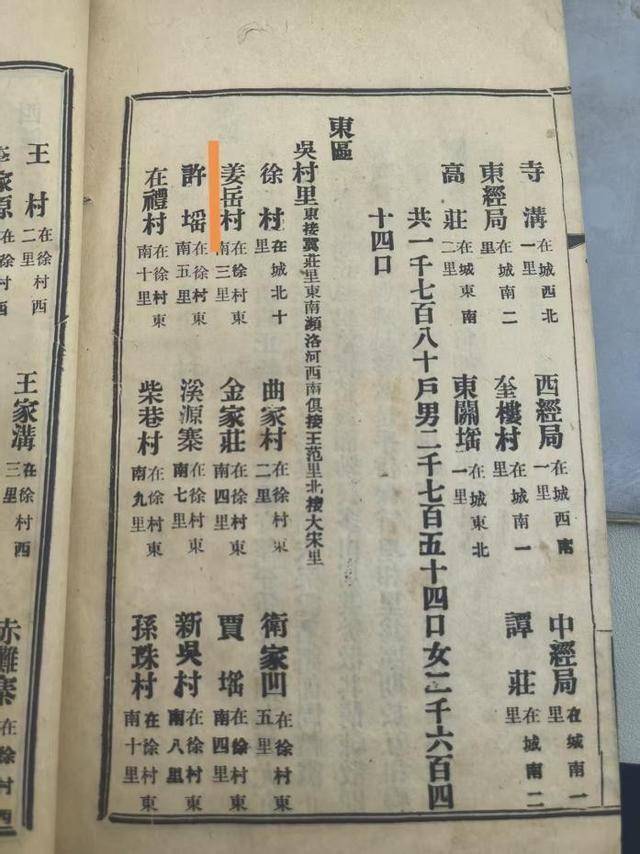 寺溝在城西北一里 西經局在城西南一里 中經局在城南一里
東經局在城南二里 奎樓村在城南一里 譚莊在城南二里
高莊在城東南二里 東關瑶在城東北一里
共一千七百八十戶男二千七百五十四口女二千六百四
十四口
東區
吳村里東接冀莊里東南瀕洛河西南俱接王范里北接大宋里
徐村在城北十里 曲家村在徐村東二里 衛家凹在徐村東五里
姜岳村在徐村東南三里 金家莊在徐村東南四里 賈瑶在徐村東南四里
許瑶在徐村東南五里 溪源寨在徐村東南七里 新吳村在徐村東南八里
在禮村在徐村東南十里 柴巷村在徐村東南九里 孫珠村在徐村東南十里
王村在徐村西二里 王家溝在徐村西三里 赤灘寨在徐村西
家原在徐村西